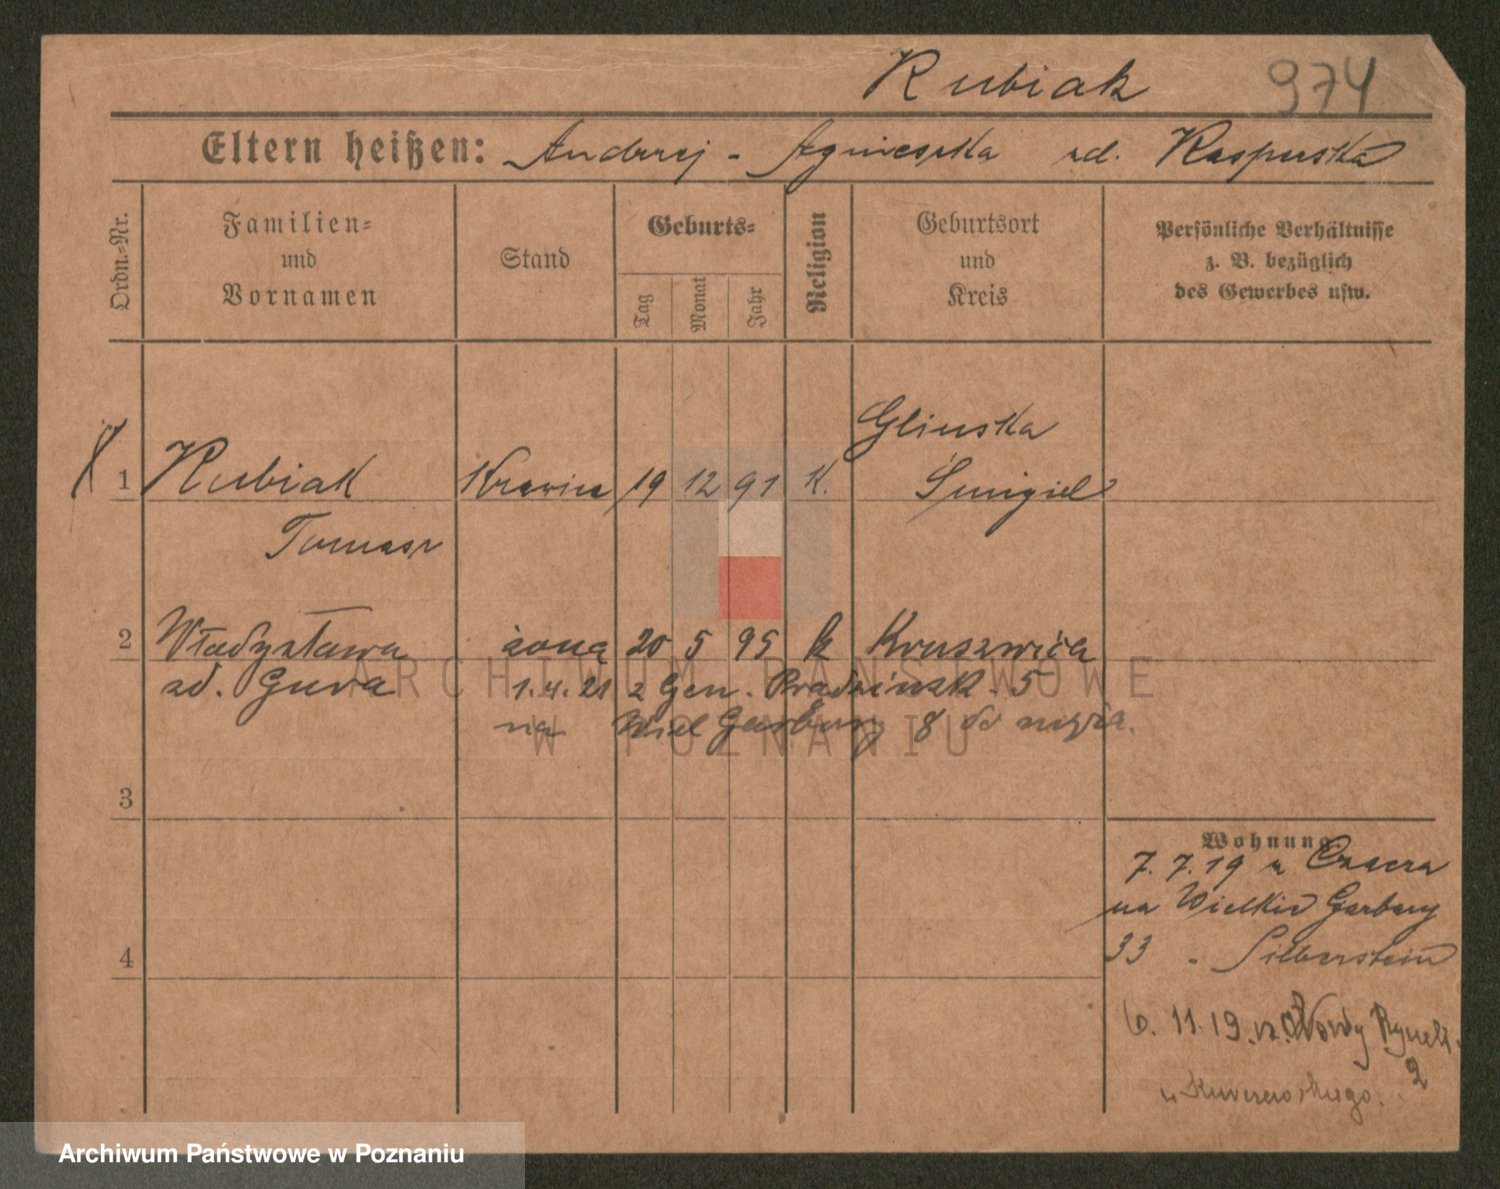 Rubiak 974
Eltern heißen: Andrzej - Agnieszka zd. Kasperska
Ordn.-Nr.
Familien- und Vornamen
Stand
Geburts-
Tag
Monat
Jahr
Religion
Geburtsort und Kreis
Persönliche Verhältnisse
z. B. bezüglich
des Gewerbes usw.
Glinska
1 Rubiak Krawiec 19 12 91 K. Śmigiel
Tomasz
2 Władysława żona 20 5 95 k Kruszwica
zd. Gura 1.4.21 z Gen. Prądzińsk. 5
na Wiel Garbary 8 do męża.
3
Wohnung
7.7.19 z Czacza
na Wielkie Garbary
4
33 - Silberstein
6.11.19. Nowy Rynek.
2
u
ARCHIWUM PAŃSTWOWE
W POZNANIU
Archiwum Państwowe w Poznaniu